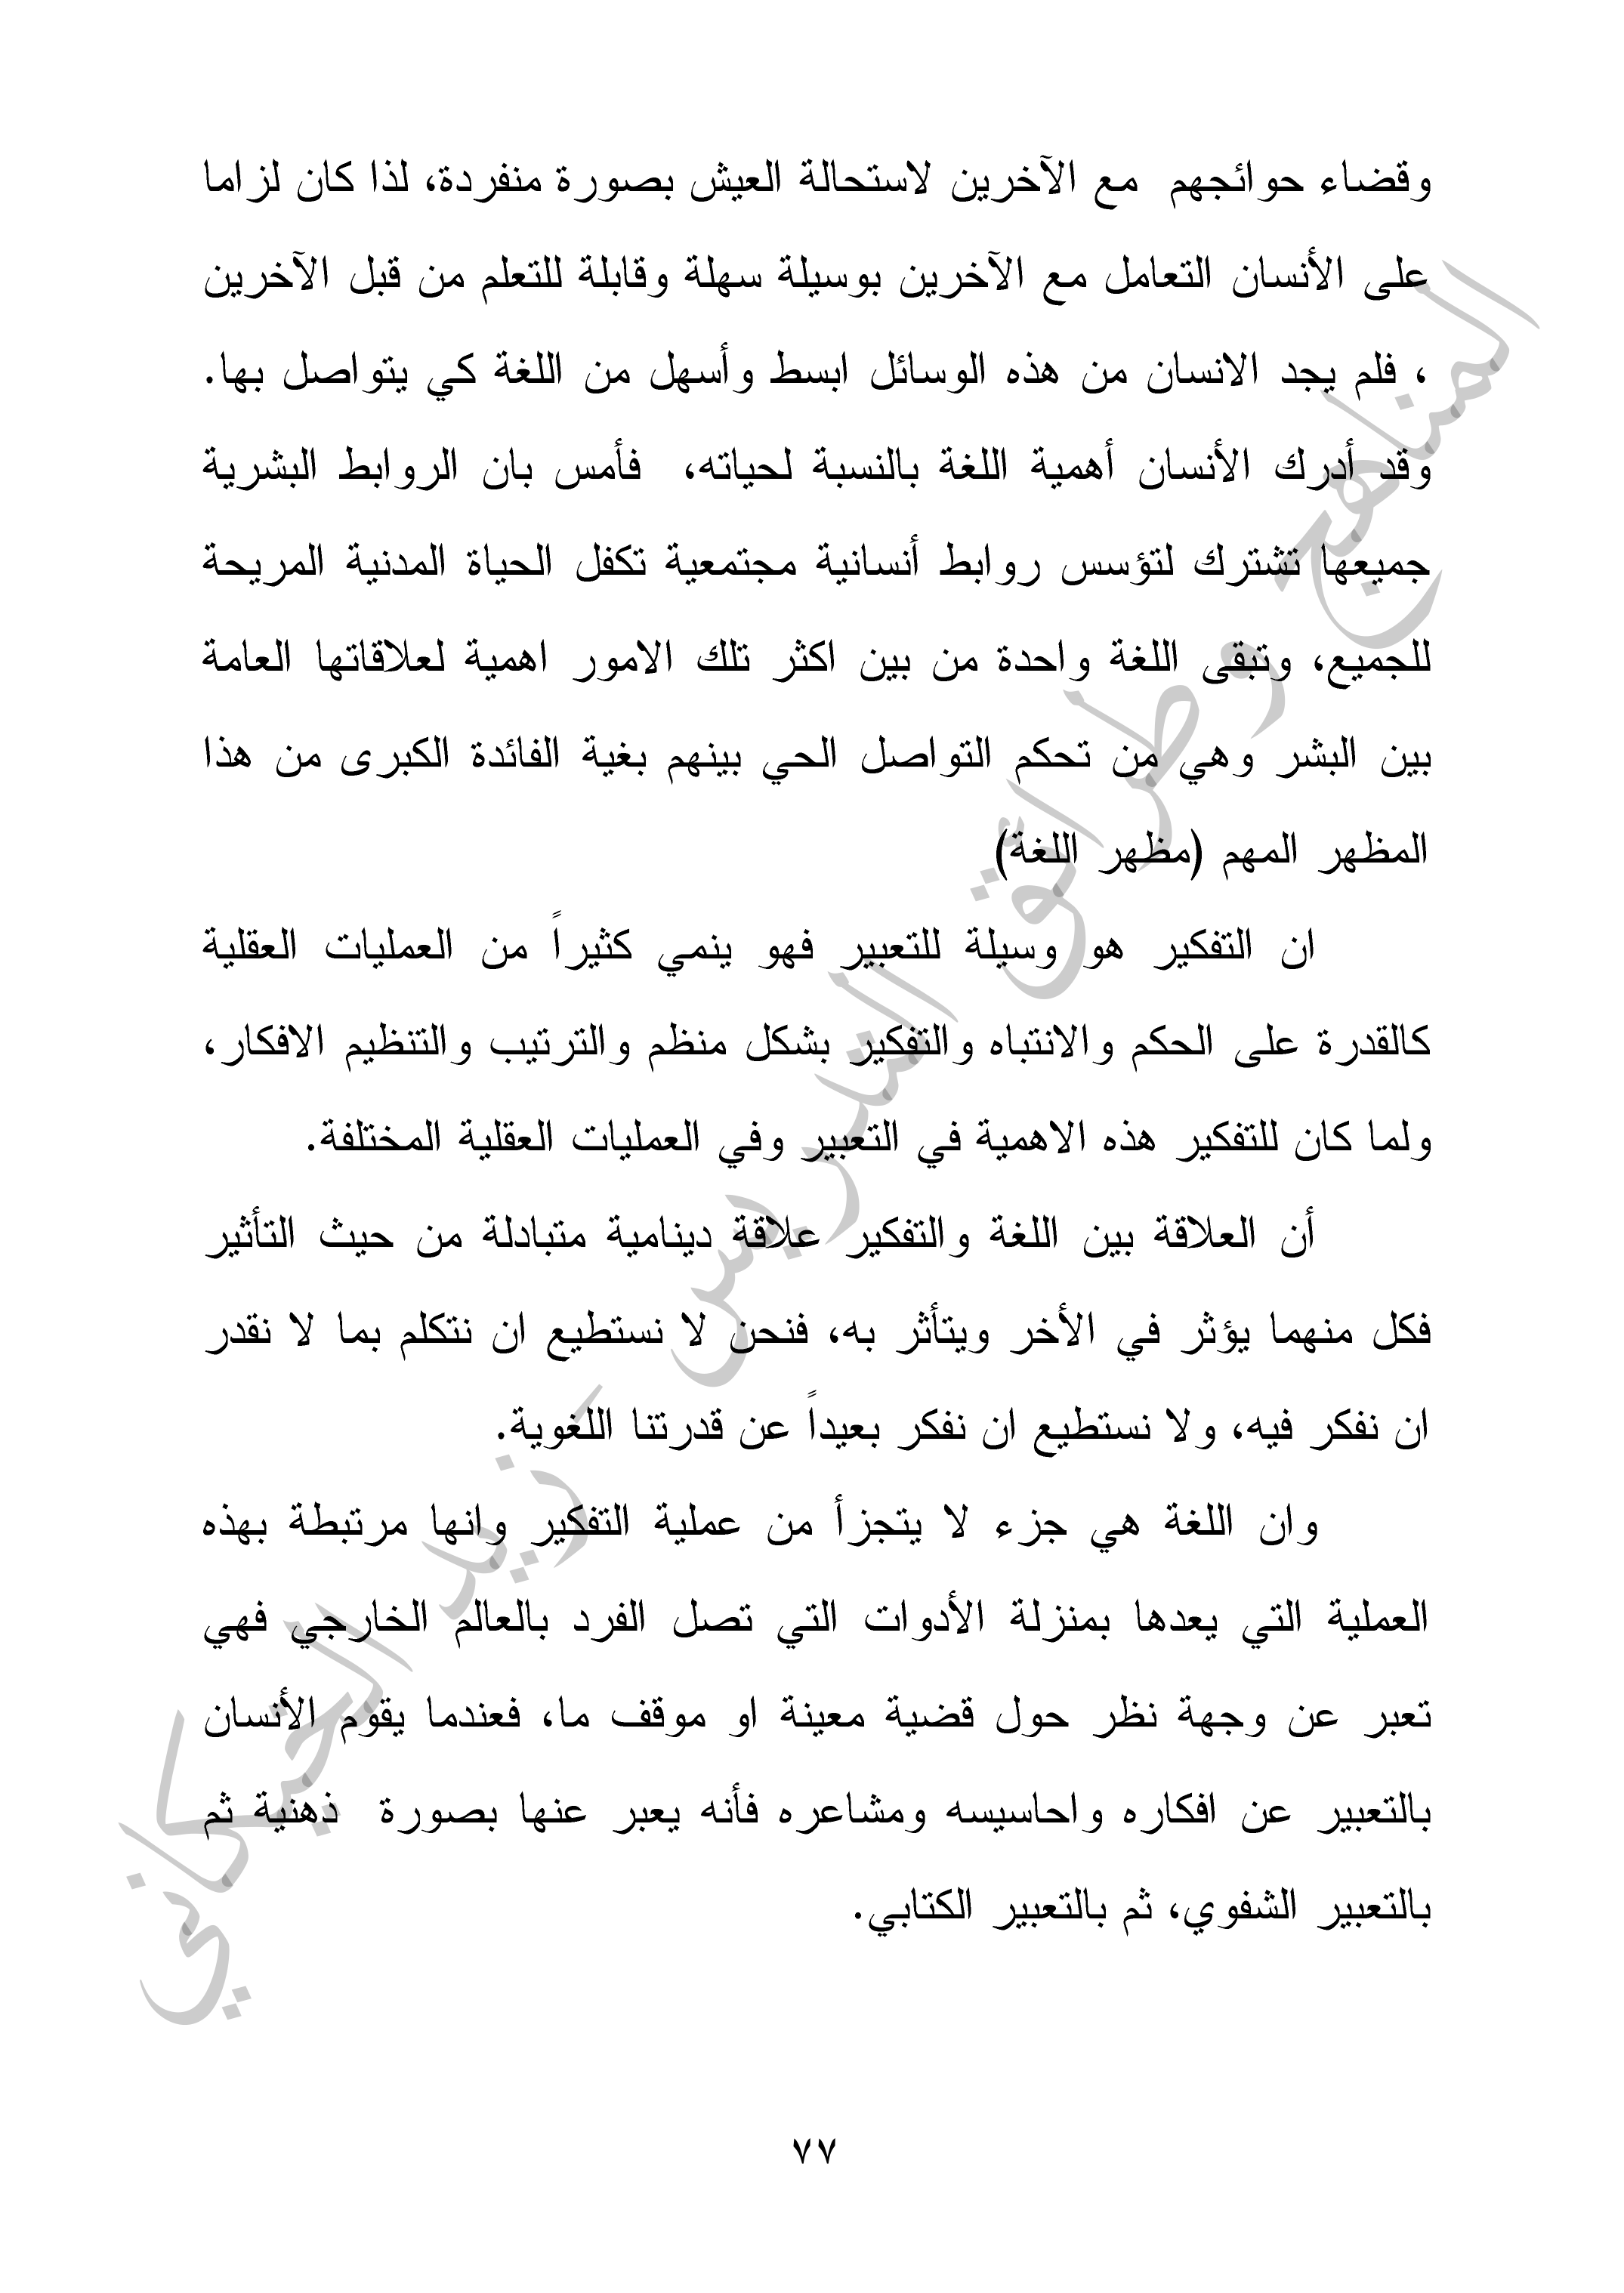 وقضاء حوائجهم مع الآخرين لاستحالة العيش بصورة منفردة، لذا كان لزاما
على الأنسان التعامل مع الآخرين بوسيلة سهلة وقابلة للتعلم من قبل الآخرين
، فلم يجد الانسان من هذه الوسائل ابسط وأسهل من اللغة كي يتواصل بها.
وقد أدرك الأنسان أهمية اللغة بالنسبة لحياته، فأمس بان الروابط البشرية
جميعها تشترك لتؤسس روابط أنسانية مجتمعية تكفل الحياة المدنية المريحة
للجميع، وتبقى اللغة واحدة من بين اكثر تلك الامور اهمية لعلاقاتها العامة
بين البشر وهي من تحكم التواصل الحي بينهم بغية الفائدة الكبرى من هذا
المظهر المهم (مظهر اللغة)
ان التفكير هو وسيلة للتعبير فهو ينمي كثيراً من العمليات العقلية
كالقدرة على الحكم والانتباه والتفكير بشكل منظم والترتيب والتنظيم الافكار،
ولما كان للتفكير هذه الاهمية في التعبير وفي العمليات العقلية المختلفة.
أن العلاقة بين اللغة والتفكير علاقة دينامية متبادلة من حيث التأثير
فكل منهما يؤثر في الأخر ويتأثر به، فنحن لا نستطيع ان نتكلم بما لا نقدر
ان نفكر فيه، ولا نستطيع ان نفكر بعيداً عن قدرتنا اللغوية.
وان اللغة هي جزء لا يتجزأ من عملية التفكير وانها مرتبطة بهذه
العملية التي يعدها بمنزلة الأدوات التي تصل الفرد بالعالم الخارجي فهي
تعبر عن وجهة نظر حول قضية معينة او موقف ما، فعندما يقوم الأنسان
بالتعبير عن افكاره واحاسيسه ومشاعره فأنه يعبر عنها بصورة ذهنية ثم
بالتعبير الشفوي، ثم بالتعبير الكتابي.
المناهج وطرائق التدريس - زيد الخيكاني
٧٧